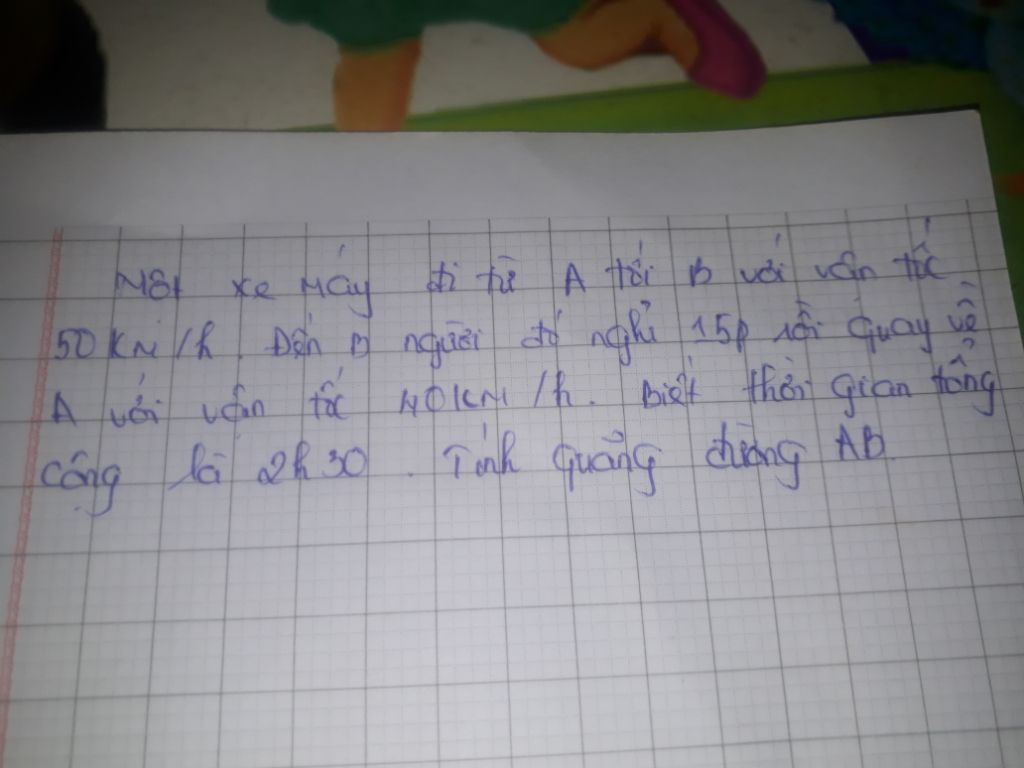 Một xe máy đi từ A tới B với vận tốc
50KM/h. Đến B người đó nghỉ 15p rồi quay về
A với vận tốc 40KM/h. Biết thời gian tổng
cộng là 2h30. Tính quảng đường AB.